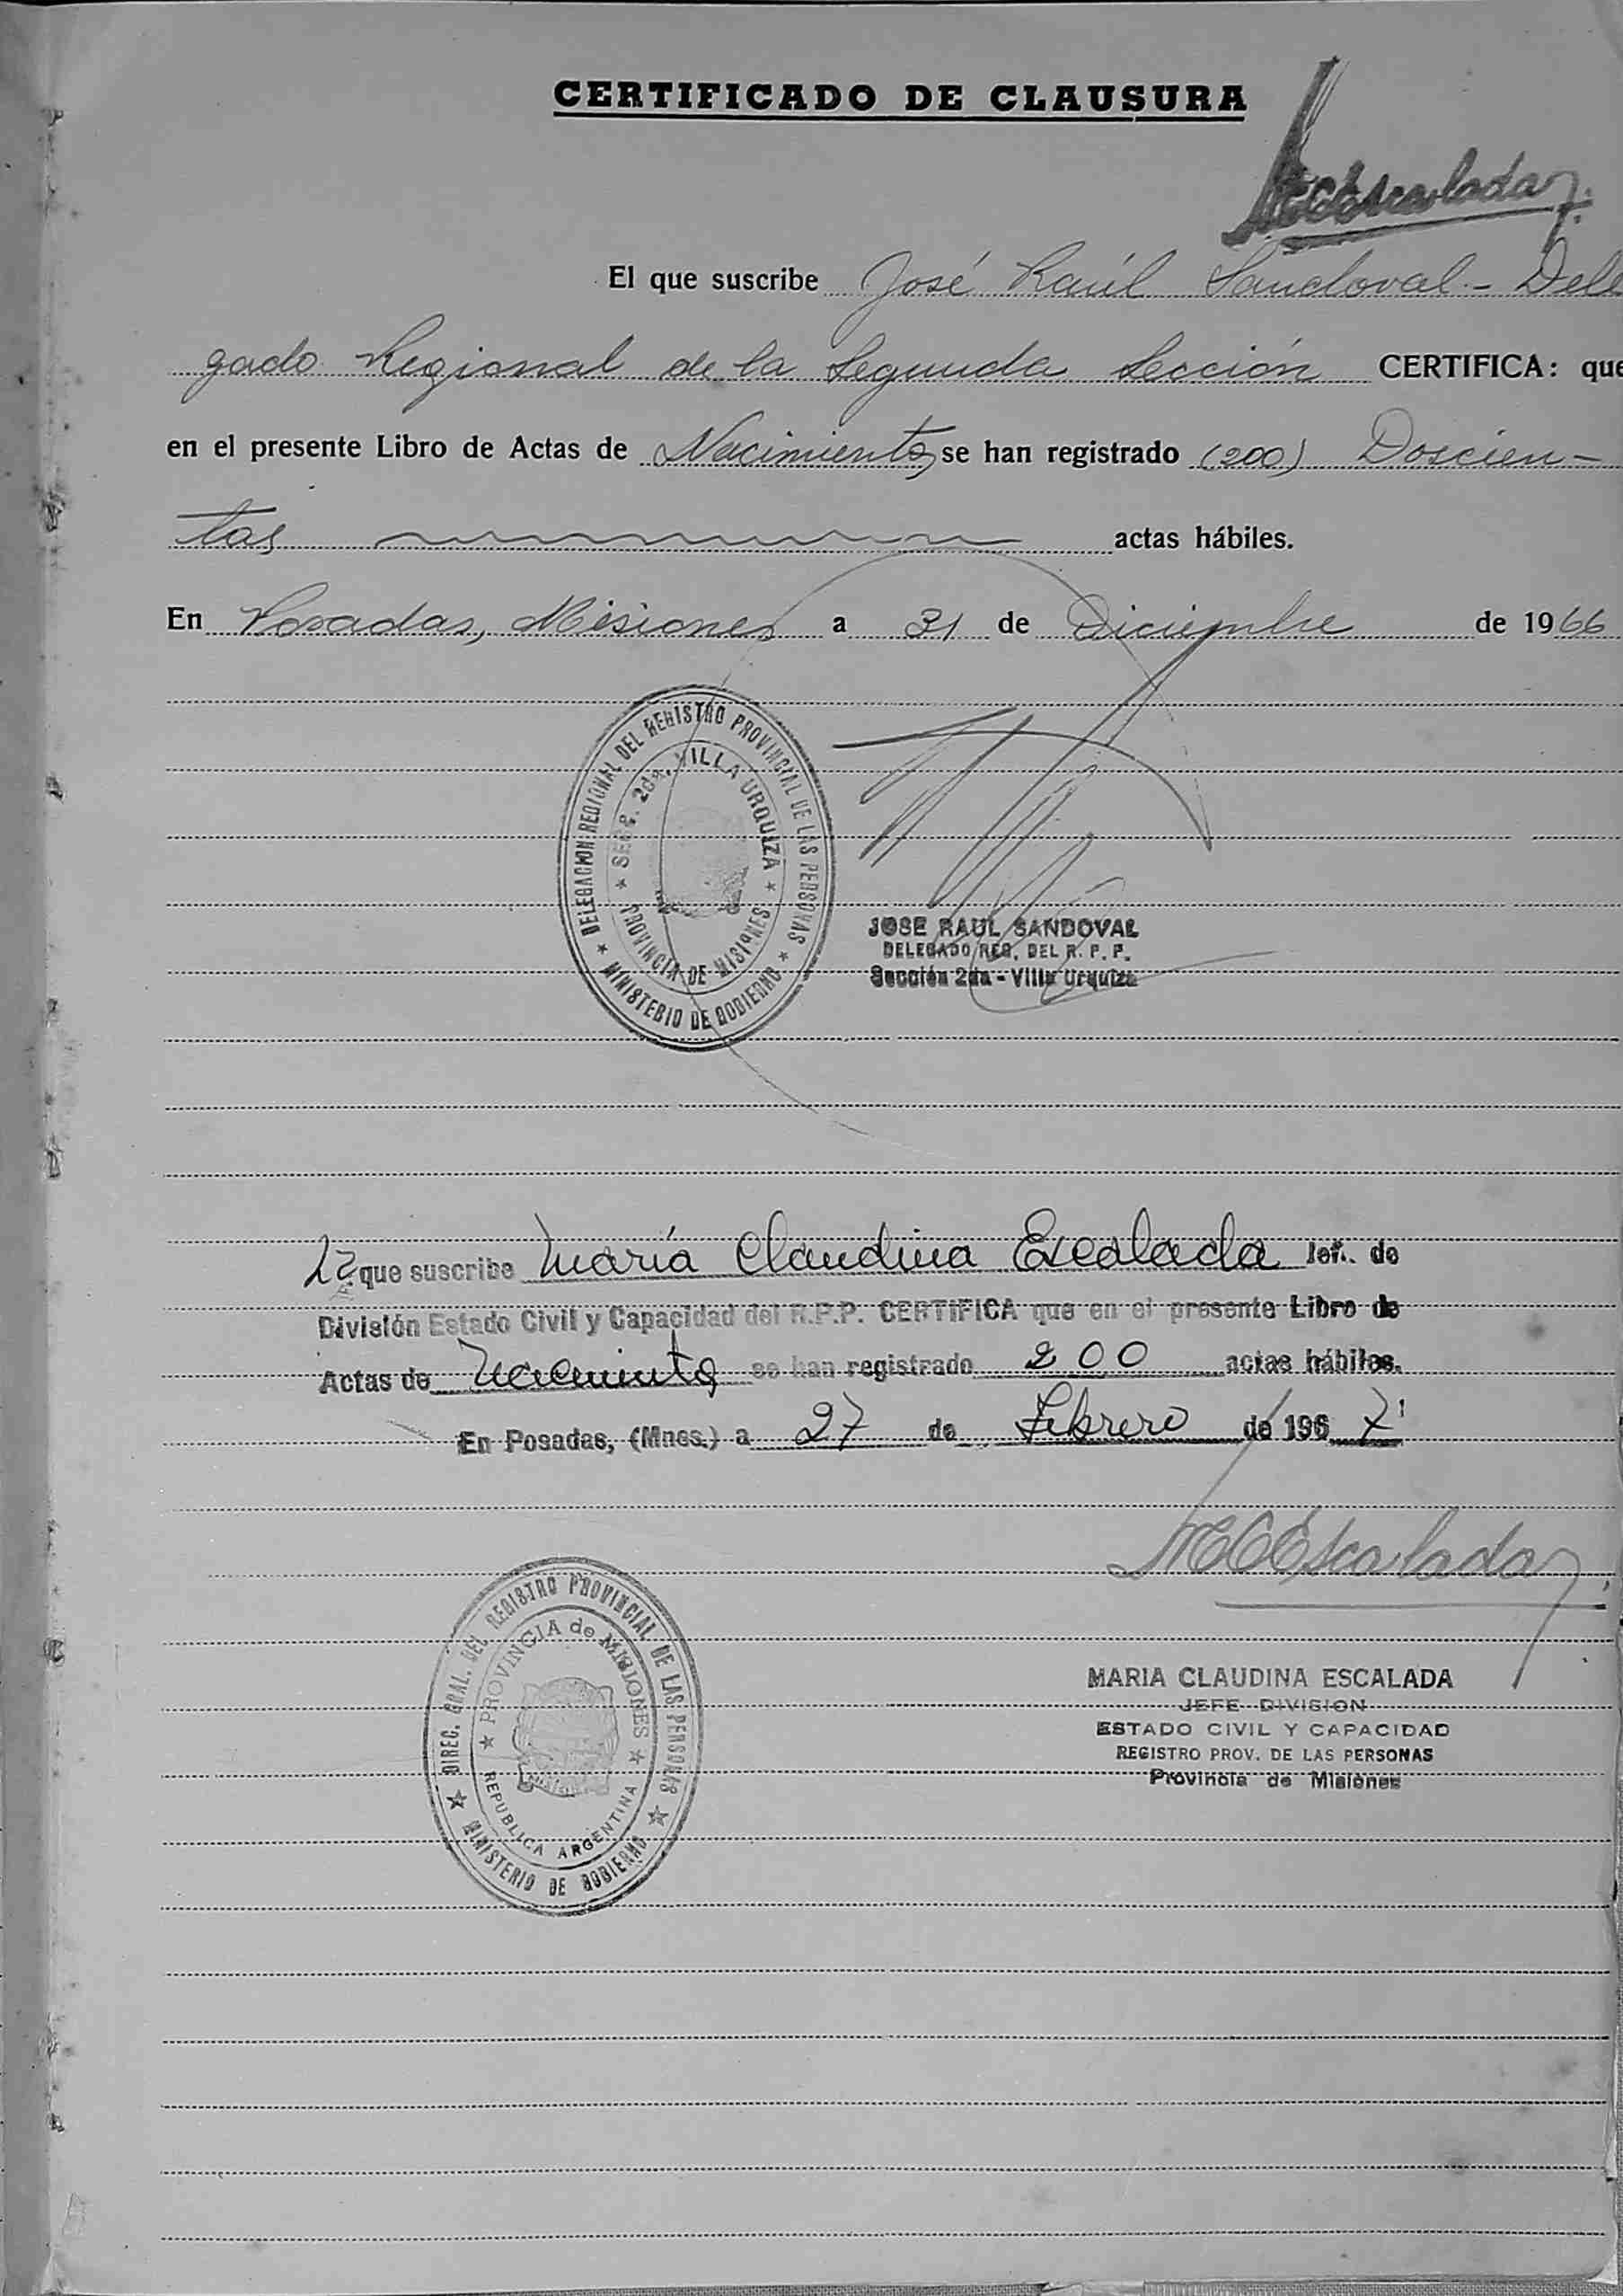 CERTIFICADO DE CLAUSURA
MCEscalada
El que suscribe José Raúl Sandoval - Dele
gado Regional de la Segunda Sección CERTIFICA: que
en el presente Libro de Actas de Nacimientos se han registrado (200) Doscien-
tas actas hábiles.
En Posadas, Misiones a 31 de Diciembre de 1966
DELEGACION REGIONAL DEL REGISTRO PROVINCIAL DE LAS PERSONAS
SECC. 2da. VILLA URQUIZA
PROVINCIA DE MISIONES
MINISTERIO DE GOBIERNO
JOSE RAUL SANDOVAL
DELEGADO REG. DEL R. P. P.
Sección 2da - Villa Urquiza
La que suscribe María Claudina Escalada Jef. de
División Estado Civil y Capacidad del R.P.P. CERTIFICA que en el presente Libro de
Actas de Nacimientos se han registrado 200 actas hábiles.
En Posadas, (Mnes.) a 27 de Febrero de 1967
MCEscalada
DIREC. GRAL. DEL REGISTRO PROVINCIAL DE LAS PERSONAS
PROVINCIA de MISIONES
REPUBLICA ARGENTINA
MINISTERIO DE GOBIERNO
MARIA CLAUDINA ESCALADA
JEFE DIVISION
ESTADO CIVIL Y CAPACIDAD
REGISTRO PROV. DE LAS PERSONAS
Provincia de Misiones